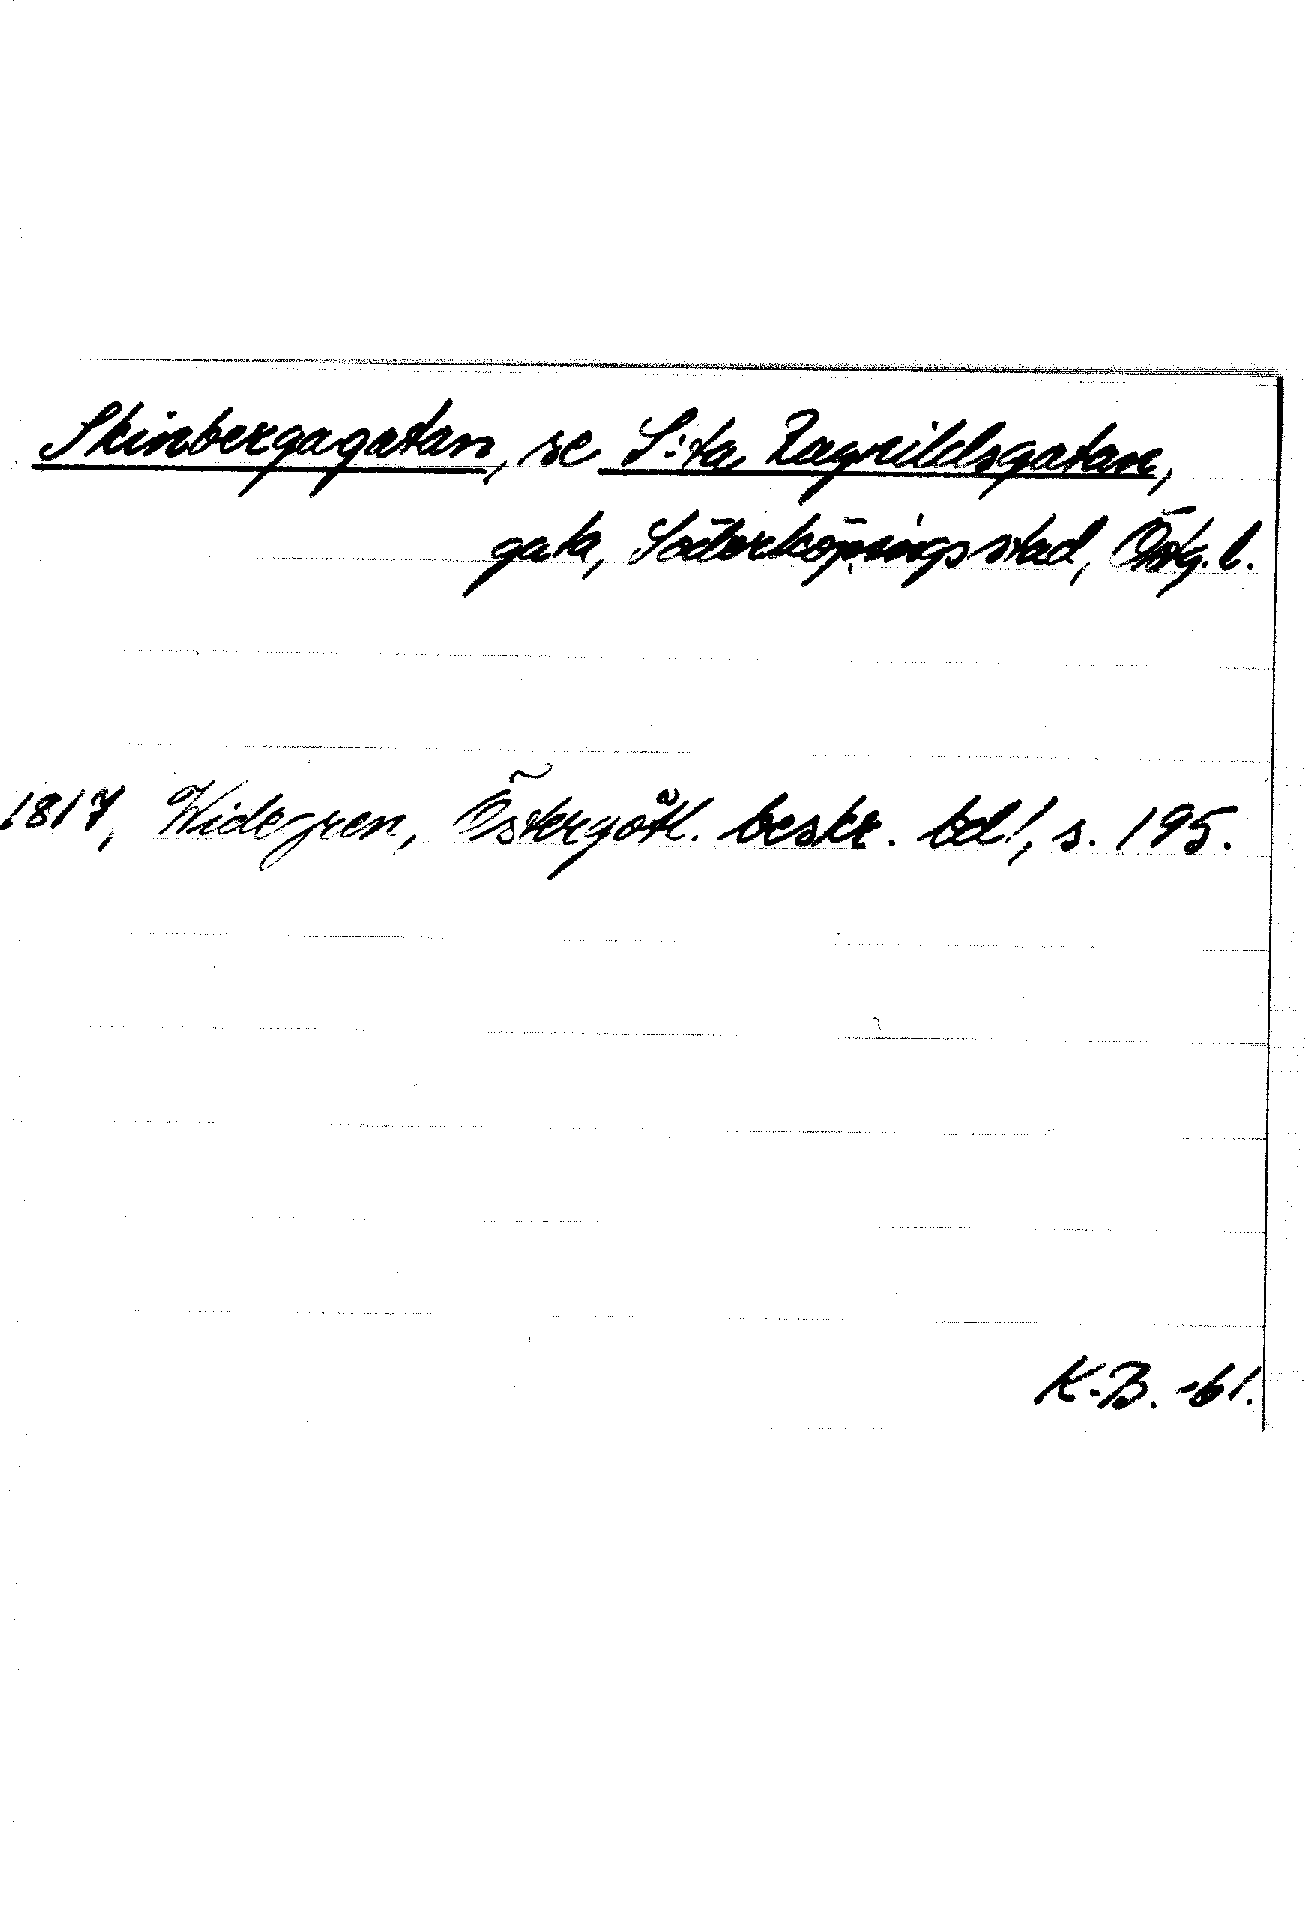 Skinbergagatan, se S:ta Ragnildsgatan,
gata, Söderköpings stad, Östg. l.
1817, Widegren, Östergötl. beskr. bd 1, s. 195.
K.B. -61.